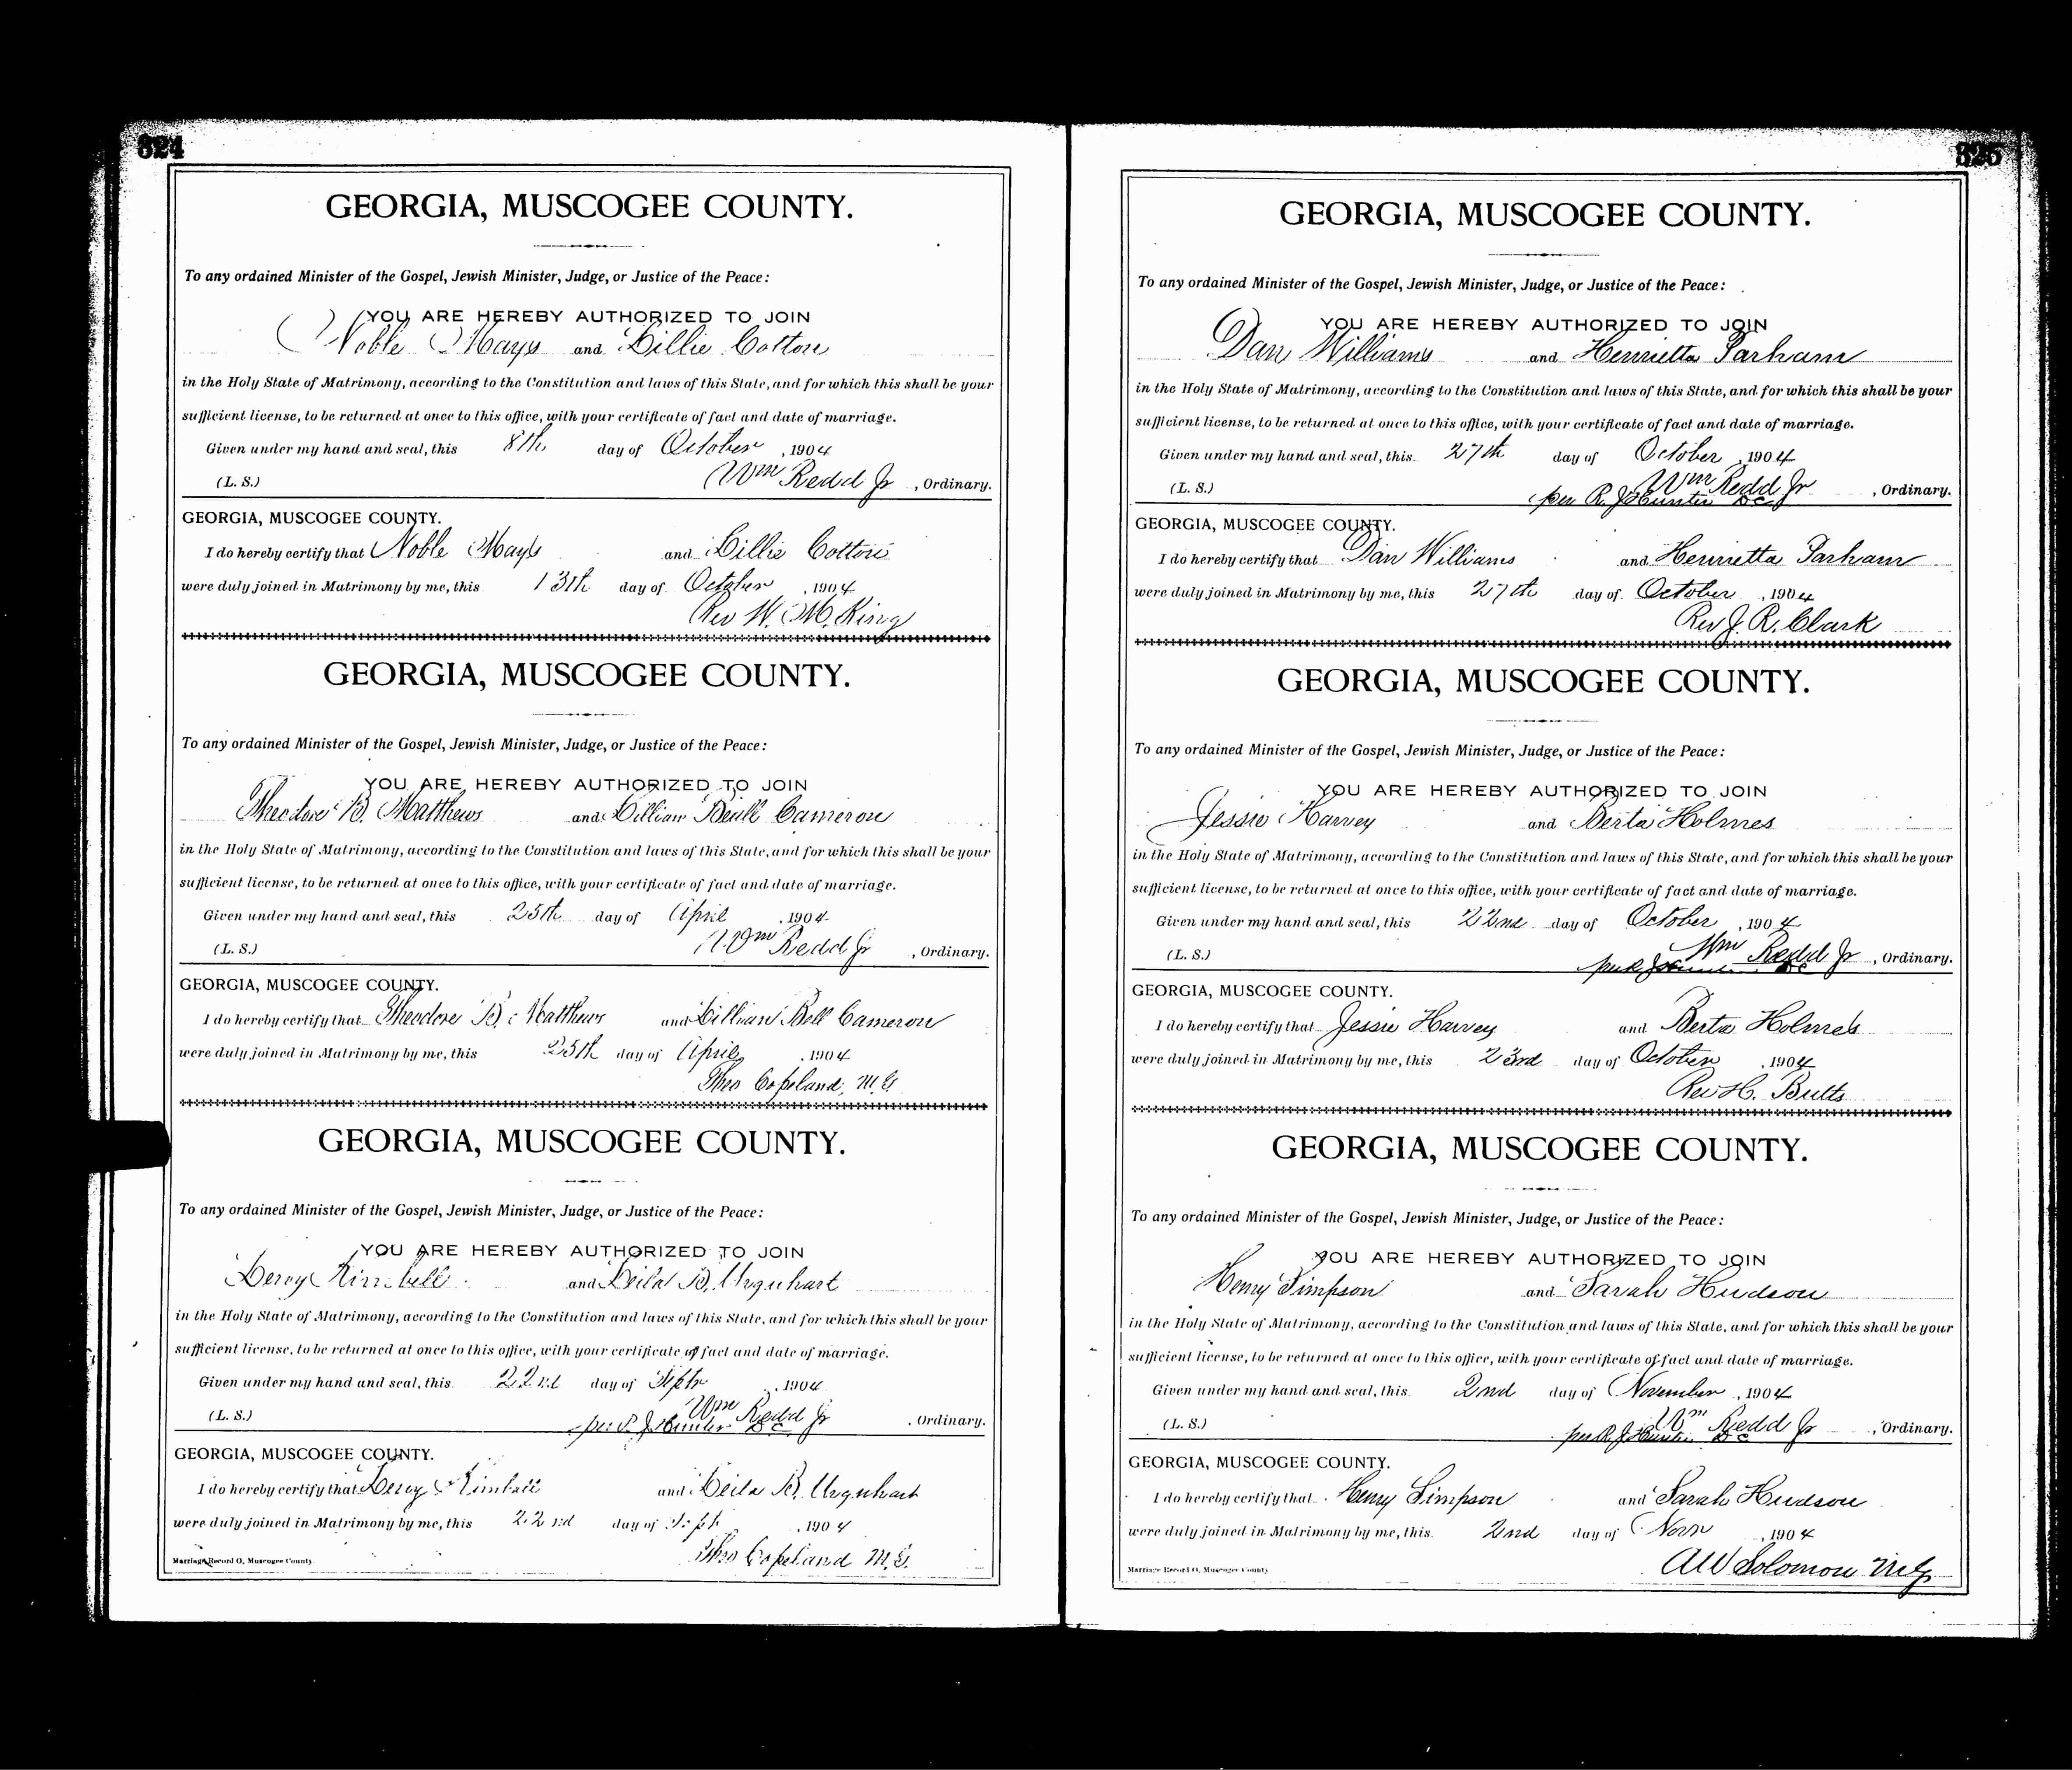 324
GEORGIA, MUSCOGEE COUNTY.
To any ordained Minister of the Gospel, Jewish Minister, Judge, or Justice of the Peace:
YOU ARE HEREBY AUTHORIZED TO JOIN
Noble Mays and Lillie Cotton
in the Holy State of Matrimony, according to the Constitution and laws of this State, and for which this shall be your
sufficient license, to be returned at once to this office, with your certificate of fact and date of marriage.
Given under my hand and seal, this 8th day of October, 1904
(L. S.) Wm Redd Jr, Ordinary.
GEORGIA, MUSCOGEE COUNTY.
I do hereby certify that Noble Mays and Lillie Cotton
were duly joined in Matrimony by me, this 13th day of October, 1904
Rev W. M. King
GEORGIA, MUSCOGEE COUNTY.
To any ordained Minister of the Gospel, Jewish Minister, Judge, or Justice of the Peace:
YOU ARE HEREBY AUTHORIZED TO JOIN
Theodore B. Matthews and Lillian Bell Cameron
in the Holy State of Matrimony, according to the Constitution and laws of this State, and for which this shall be your
sufficient license, to be returned at once to this office, with your certificate of fact and date of marriage.
Given under my hand and seal, this 25th day of April, 1904
(L. S.) Wm Redd Jr, Ordinary.
GEORGIA, MUSCOGEE COUNTY.
I do hereby certify that Theodore B. Matthews and Lillian Bell Cameron
were duly joined in Matrimony by me, this 25th day of April, 1904
Theo Copeland, M.G.
GEORGIA, MUSCOGEE COUNTY.
To any ordained Minister of the Gospel, Jewish Minister, Judge, or Justice of the Peace:
YOU ARE HEREBY AUTHORIZED TO JOIN
Leroy Kimbell and Leila B. Urquhart
in the Holy State of Matrimony, according to the Constitution and laws of this State, and for which this shall be your
sufficient license, to be returned at once to this office, with your certificate of fact and date of marriage.
Given under my hand and seal, this 22nd day of Septr, 1904
(L. S.) Wm Redd Jr, Ordinary.
per R. J. Hunter DC
GEORGIA, MUSCOGEE COUNTY.
I do hereby certify that Leroy Kimbell and Leila B. Urquhart
were duly joined in Matrimony by me, this 22nd day of Sept, 1904
Theo Copeland M.G.
Marriage Record O, Muscogee County
325
GEORGIA, MUSCOGEE COUNTY.
To any ordained Minister of the Gospel, Jewish Minister, Judge, or Justice of the Peace:
YOU ARE HEREBY AUTHORIZED TO JOIN
Dan Williams and Henrietta Parham
in the Holy State of Matrimony, according to the Constitution and laws of this State, and for which this shall be your
sufficient license, to be returned at once to this office, with your certificate of fact and date of marriage.
Given under my hand and seal, this 27th day of October, 1904
(L. S.) Wm Redd Jr, Ordinary.
per R. J. Hunter DC
GEORGIA, MUSCOGEE COUNTY.
I do hereby certify that Dan Williams and Henrietta Parham
were duly joined in Matrimony by me, this 27th day of October, 1904
Rev J. R. Clark
GEORGIA, MUSCOGEE COUNTY.
To any ordained Minister of the Gospel, Jewish Minister, Judge, or Justice of the Peace:
YOU ARE HEREBY AUTHORIZED TO JOIN
Jessie Harvey and Berta Holmes
in the Holy State of Matrimony, according to the Constitution and laws of this State, and for which this shall be your
sufficient license, to be returned at once to this office, with your certificate of fact and date of marriage.
Given under my hand and seal, this 22nd day of October, 1904
(L. S.) Wm Redd Jr, Ordinary.
per R J Hunter DC
GEORGIA, MUSCOGEE COUNTY.
I do hereby certify that Jessie Harvey and Berta Holmes
were duly joined in Matrimony by me, this 23rd day of October, 1904
Rev H. Butts
GEORGIA, MUSCOGEE COUNTY.
To any ordained Minister of the Gospel, Jewish Minister, Judge, or Justice of the Peace:
YOU ARE HEREBY AUTHORIZED TO JOIN
Henry Simpson and Sarah Hudson
in the Holy State of Matrimony, according to the Constitution and laws of this State, and for which this shall be your
sufficient license, to be returned at once to this office, with your certificate of fact and date of marriage.
Given under my hand and seal, this 2nd day of November, 1904
(L. S.) Wm Redd Jr, Ordinary.
per R J Hunter DC
GEORGIA, MUSCOGEE COUNTY.
I do hereby certify that Henry Simpson and Sarah Hudson
were duly joined in Matrimony by me, this 2nd day of Novr, 1904
A W Solomon M G
Marriage Record O, Muscogee County